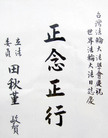 台灣法輪大法學會慶祝
世界法輪大法日誌慶
正念正行
立法委員
田秋堇
敬賀